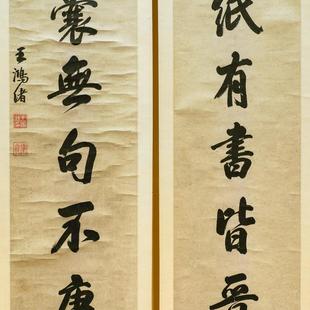 紙有書皆晉
囊無句不唐
王鴻緒